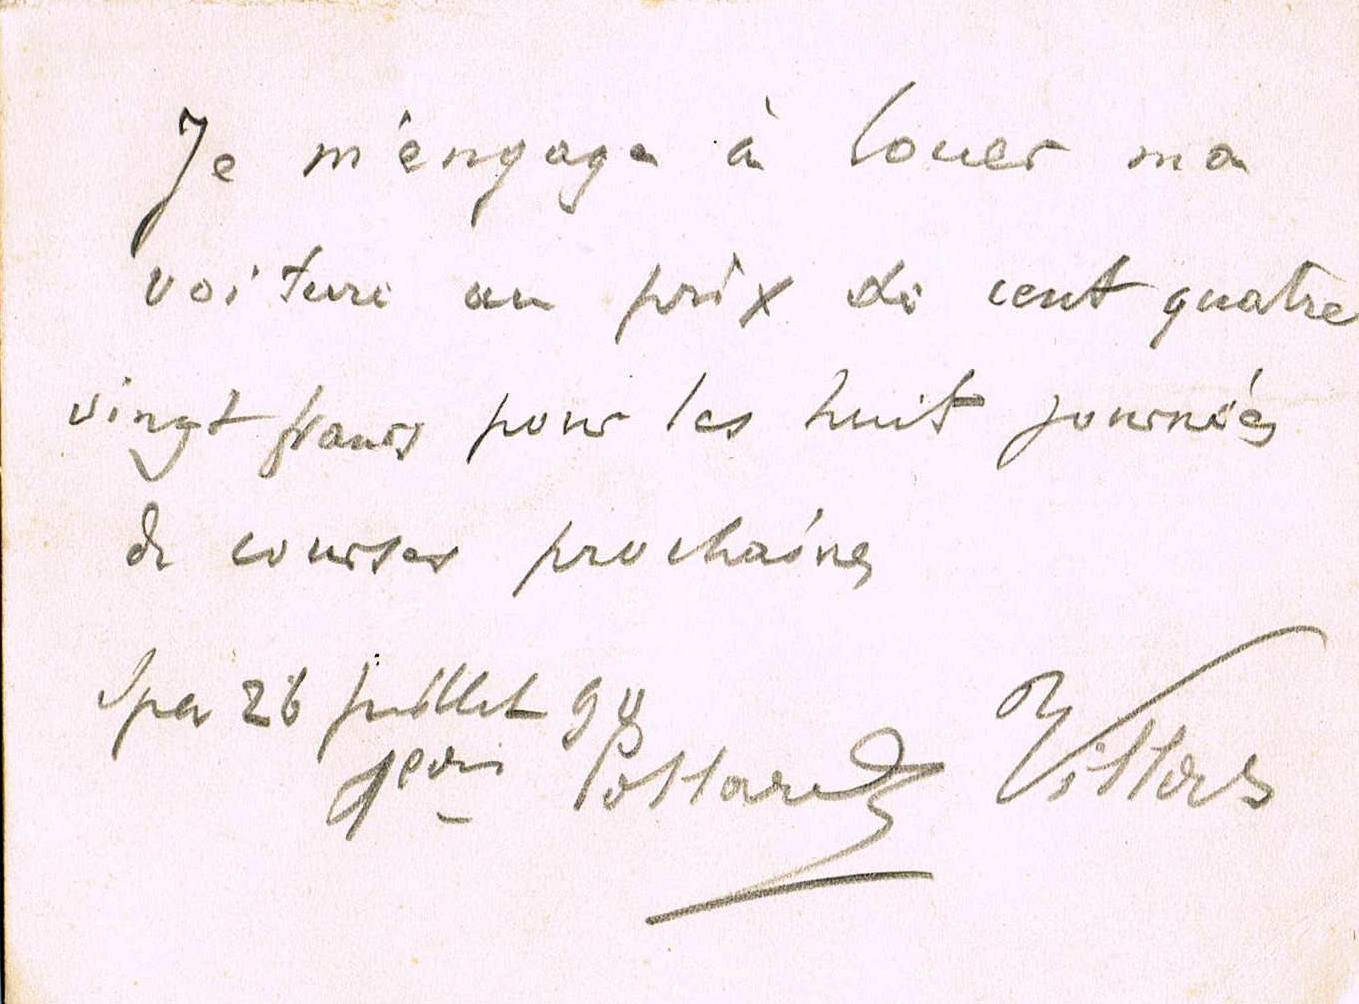 Je m'engage à louer ma
voiture au prix de cent quatre
vingt francs pour les huit journées
de courses prochaines
Spa 26 juillet 98
Pottard Villers